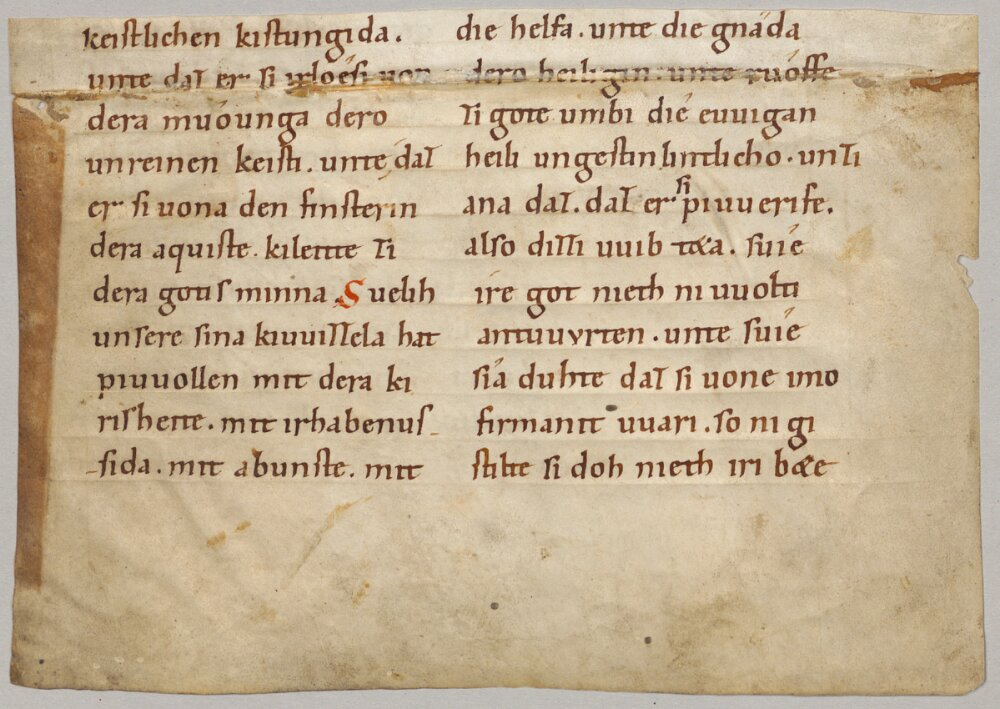 keistlichen kistungida.
unte daz er si irloesi uon
dera muóunga dero
unreinen keisti. unte daz
er si uona den finsterin
dera aquiste. kileitte zi
dera gotis minna Suelih
unsere sina kiuuizzela hat
piuuollen mit dera ki
risheite. mit irhabenus-
-sida. mit abunste. mit
die helfa. unte die gnáda
dero heiligin. unte ruóffe
zi gote umbi dié euuigan
heili ungestinlintlicho. unzi
ana daz. daz er si piuuerife.
also dizzi uuib tæta. suíe
ire got nieth ni uuolti
antuuvrten. unte suíe
siá duhte daz si uone imo
firmanit uuari. so ni gi
stilte si doh nieth iri bæe